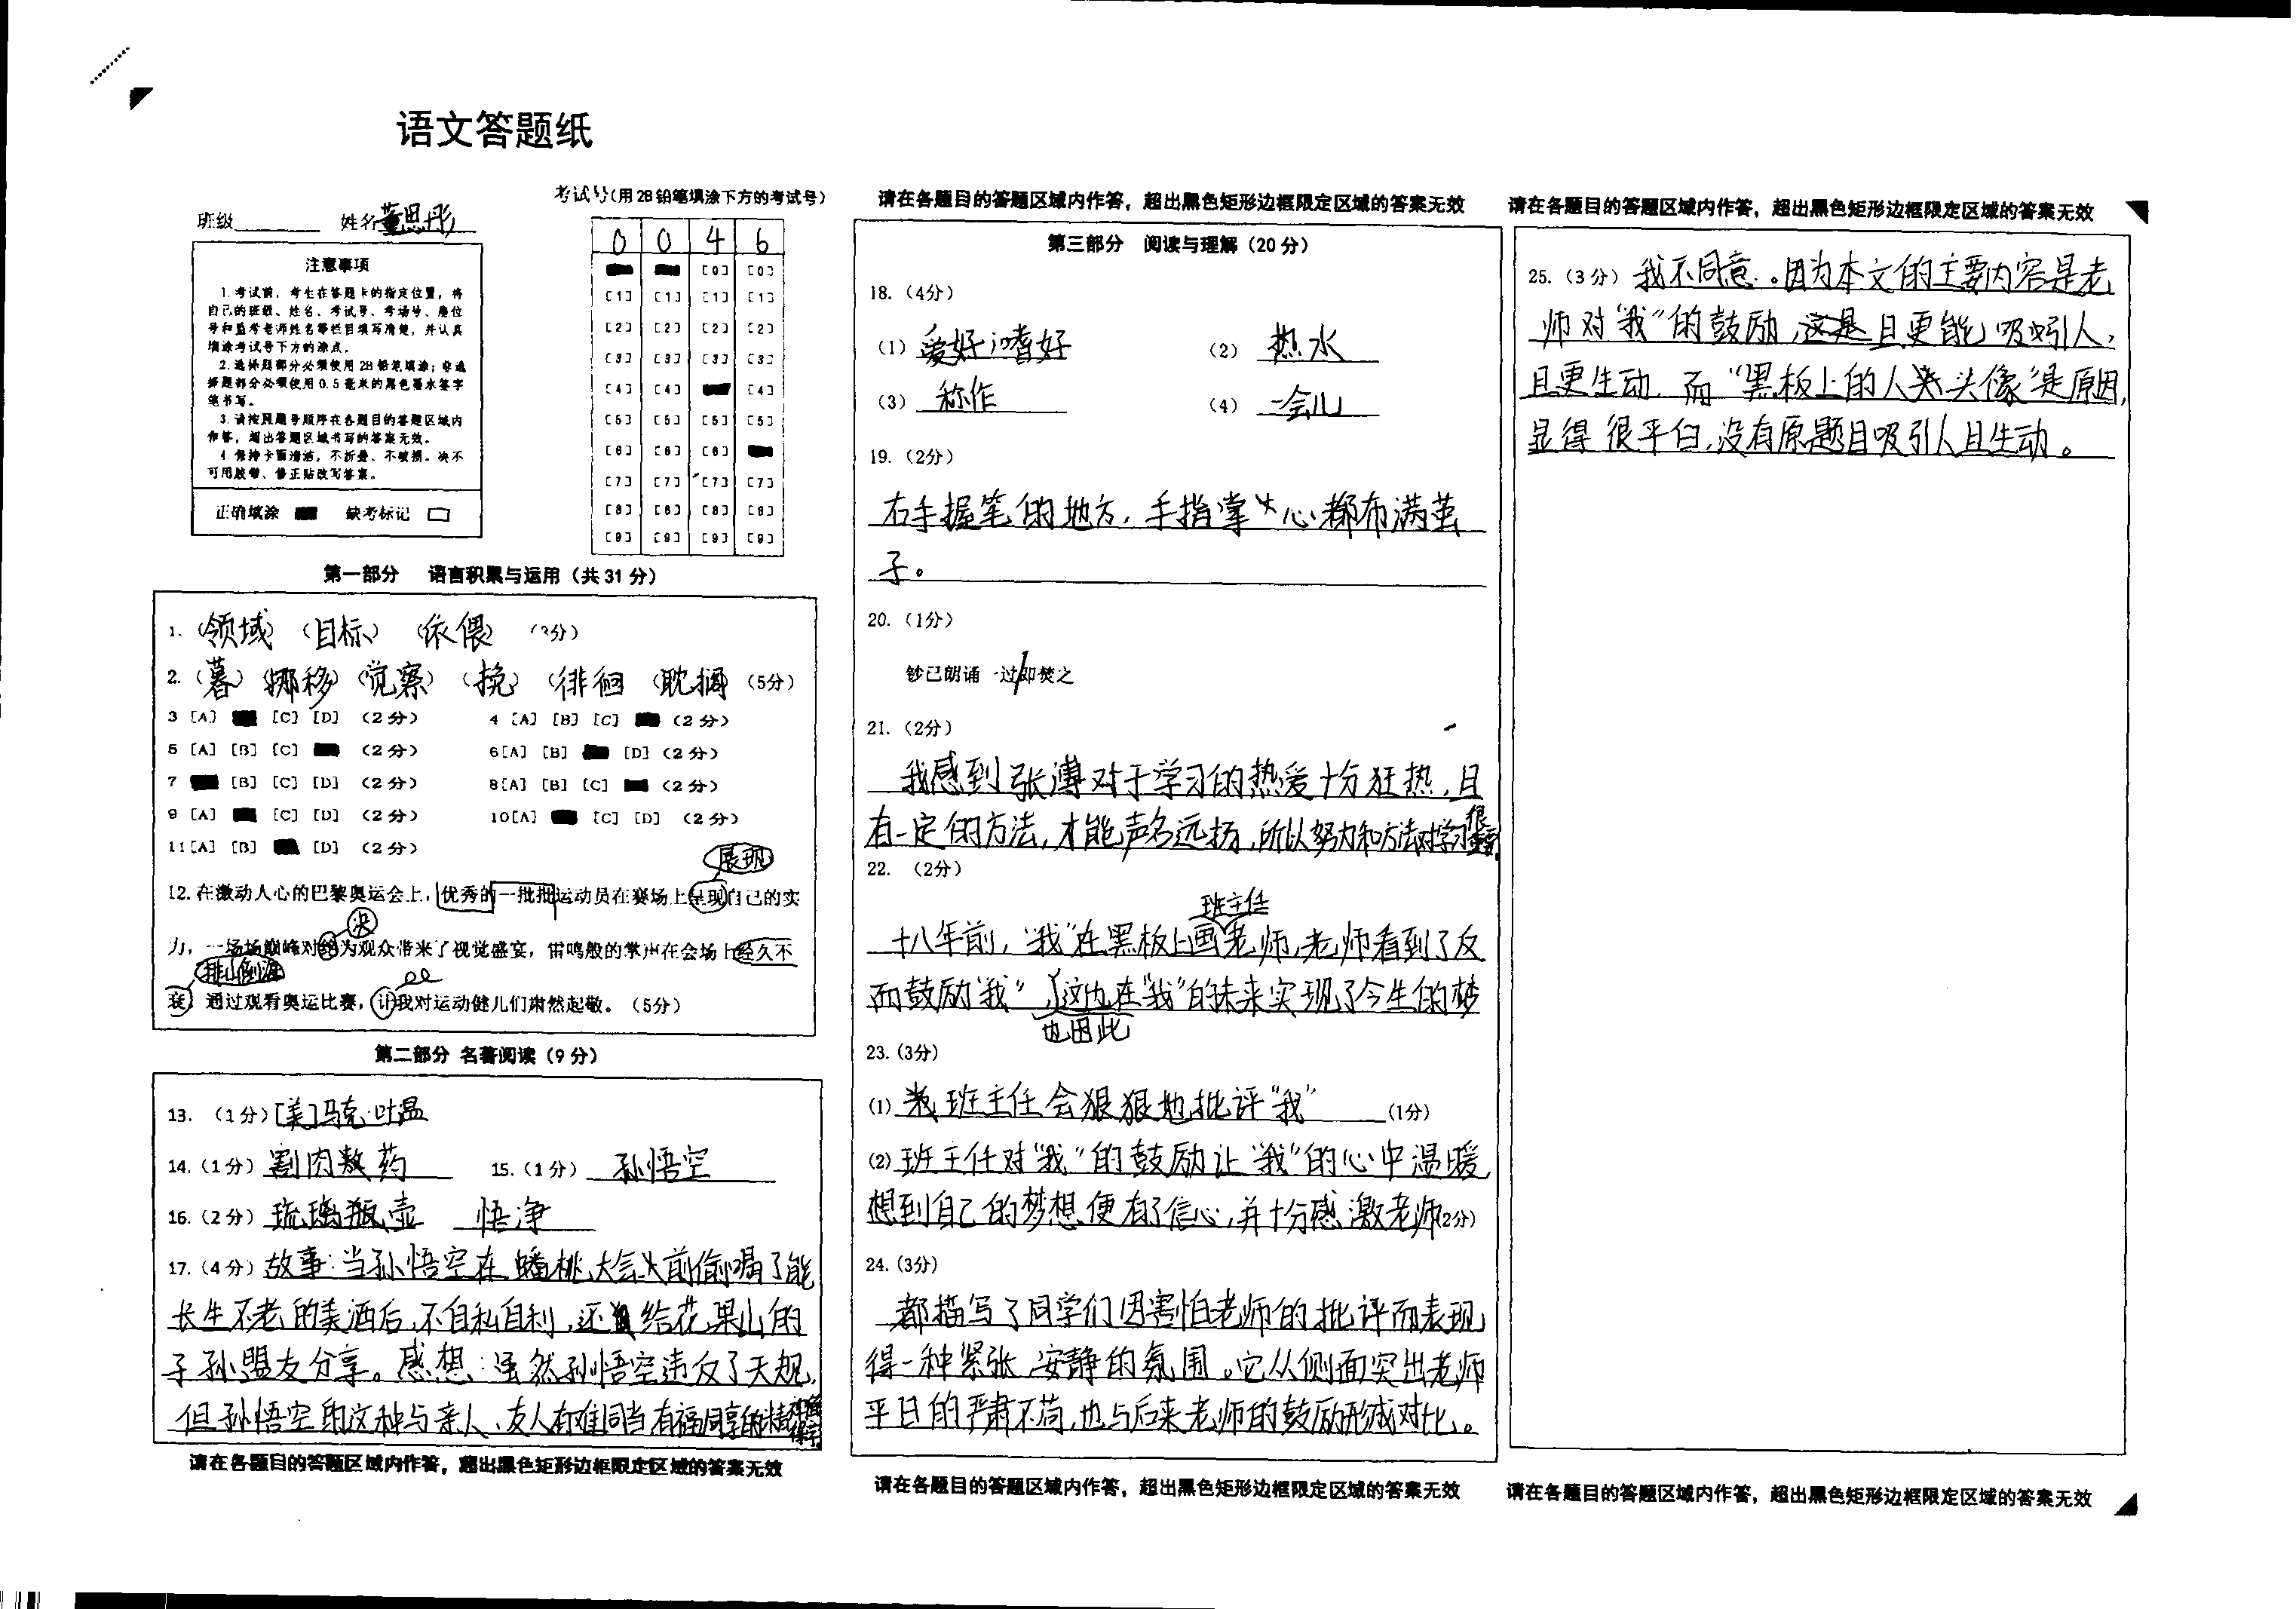 语文答题纸
班级 姓名 董思彤
考试号(用 2B 铅笔填涂下方的考试号)
0 0 4 6
[0] [0]
[1] [1] [1] [1]
[2] [2] [2] [2]
[3] [3] [3] [3]
[4] [4] [4]
[5] [5] [5] [5]
[6] [6] [6]
[7] [7] [7] [7]
[8] [8] [8] [8]
[9] [9] [9] [9]
注意事项
1.考试前,考生在答题卡的指定位置,将
自己的班级、姓名、考试号、考场号、座位
号和监考老师姓名等栏目填写清楚,并认真
填涂考试号下方的涂点。
2.选择题部分必须使用 2B 铅笔填涂;非选
择题部分必须使用 0.5 毫米的黑色墨水签字
笔书写。
3.请按照题号顺序在各题目的答题区域内
作答,超出答题区域书写的答案无效。
4.保持卡面清洁,不折叠、不破损。决不
可用胶带、修正贴改写答案。
正确填涂 缺考标记
第一部分 语言积累与运用(共 31 分)
1.(领域)(目标)(依偎)(3分)
2.(暮)(挪移)(觉察)(挽)(徘徊)(耽搁)(5分)
3 [A] [C] [D] (2 分) 4 [A] [B] [C] (2 分)
5 [A] [B] [C] (2 分) 6[A] [B] [D] (2 分)
7 [B] [C] [D] (2 分) 8[A] [B] [C] (2 分)
9 [A] [C] [D] (2 分) 10[A] [C] [D] (2 分)
11[A] [B] [D] (2 分)
展现
12.在激动人心的巴黎奥运会上,优秀的一批批运动员在赛场上呈现自己的实
决
力,一场场巅峰对绝为观众带来了视觉盛宴,雷鸣般的掌声在会场上经久不
排山倒海
衰。通过观看奥运比赛,让我对运动健儿们肃然起敬。(5分)
第二部分 名著阅读(9 分)
13.(1分)[美]马克·吐温
14.(1分)割肉敷药 15.(1分)孙悟空
16.(2分)琉璃瓶壶 悟净
17.(4分)故事:当孙悟空在蟠桃大会前偷喝了能
长生不老的美酒后,不自私自利,还给花果山的
子孙盟友分享。感想:虽然孙悟空违反了天规,
但孙悟空的这种与亲人、友人有难同当有福同享的精神
请在各题目的答题区域内作答,超出黑色矩形边框限定区域的答案无效
请在各题目的答题区域内作答,超出黑色矩形边框限定区域的答案无效
第三部分 阅读与理解(20 分)
18.(4分)
(1)爱好;嗜好 (2)热水
(3)称作 (4)一会儿
19.(2分)
右手握笔的地方,手指掌心都布满茧
子。
20.(1分)
钞已朗诵一过/即焚之
21.(2分)
我感到张溥对于学习的热爱十分狂热,且
有一定的方法,才能声名远扬,所以努力和方法对学习很重要
22.(2分)
班主任
十八年前,“我”在黑板上画老师,老师看到了反
而鼓励“我”,这也在“我”的未来实现了今生的梦
也因此
23.(3分)
(1)班主任会狠狠地批评“我”(1分)
(2)班主任对“我”的鼓励让“我”的心中温暖
想到自己的梦想便有了信心,并十分感激老师(2分)
24.(3分)
都描写了同学们因害怕老师的批评而表现
得一种紧张、安静的氛围。它从侧面突出老师
平日的严肃不苟,也与后来老师的鼓励形成对比。
请在各题目的答题区域内作答,超出黑色矩形边框限定区域的答案无效
请在各题目的答题区域内作答,超出黑色矩形边框限定区域的答案无效
25.(3分)我不同意。因为本文的主要内容是老
师对“我”的鼓励,这是且更能吸引人,
且更生动.而“黑板上的人头像”是原因,
显得很平白,没有原题目吸引人且生动。
请在各题目的答题区域内作答,超出黑色矩形边框限定区域的答案无效